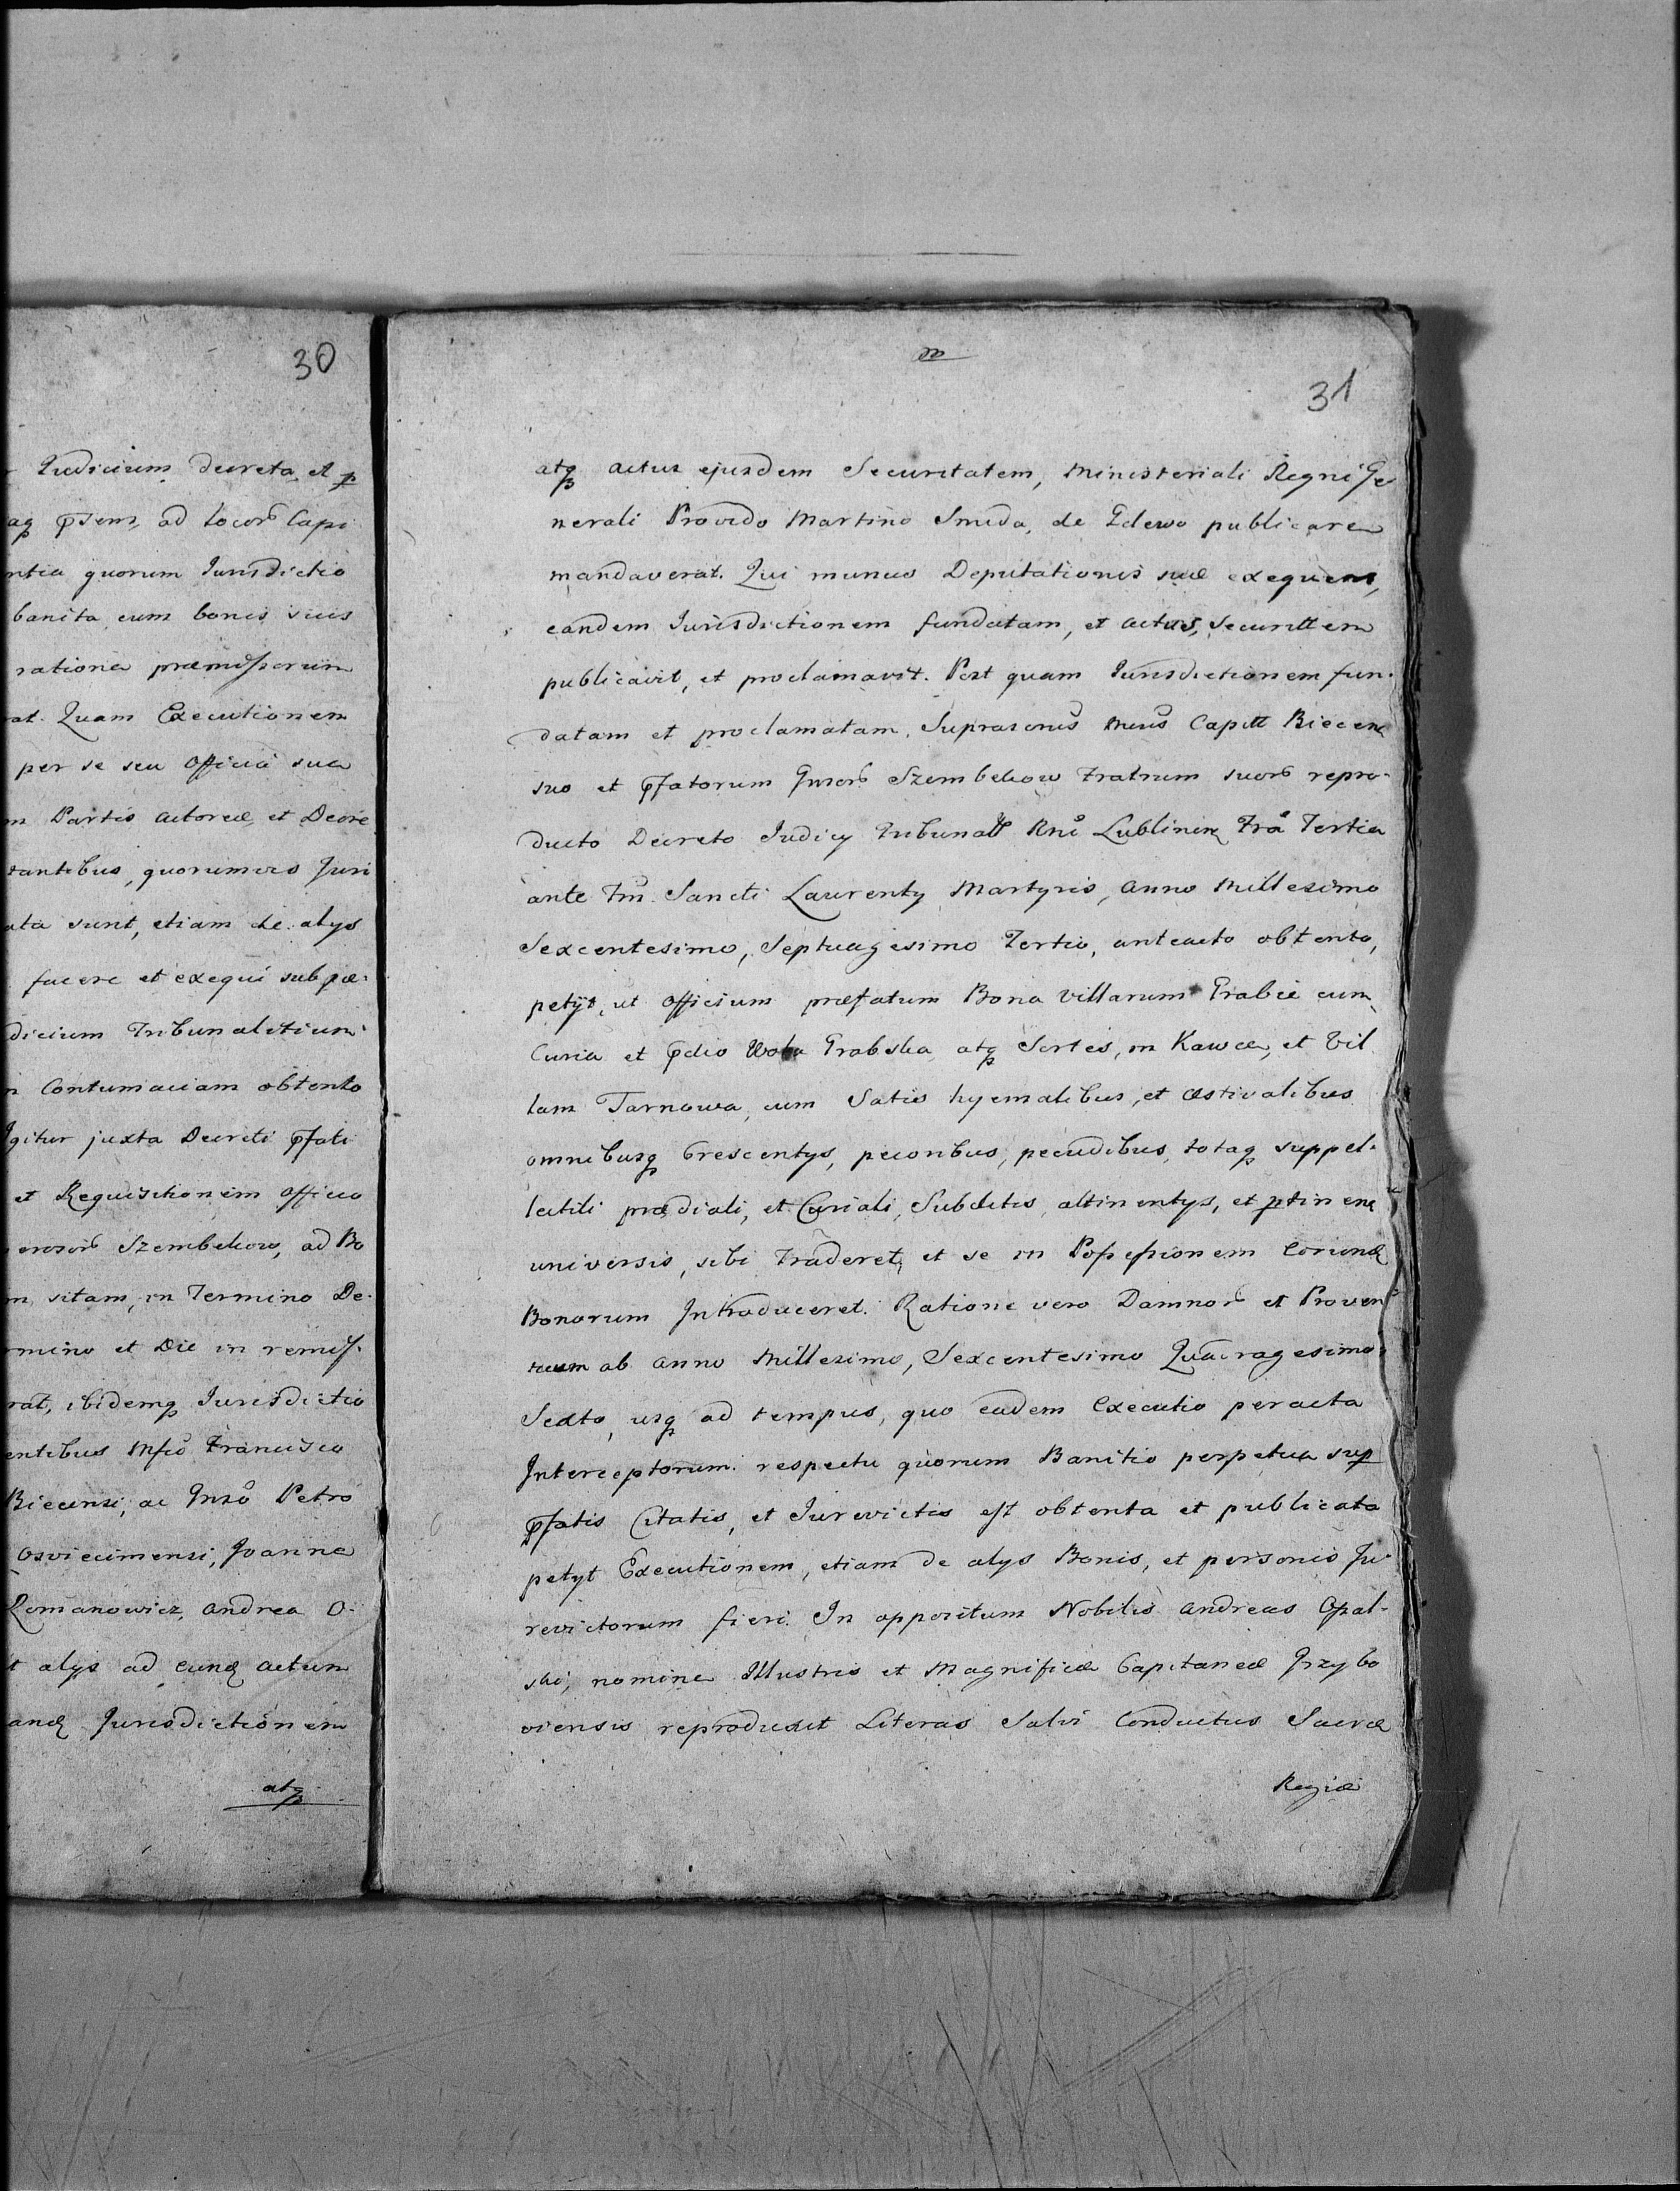 30
Judicium decreta et p
ad locor Capi
ntia quorum Jurisdictio
banita cum bonis suis
ratione præmissorum
at. Quam Executionem
per se seu Officia sua
m Partis Actoreæ, et Decre
tantibus, quorumvis Juri
ata sunt, etiam de alys
facere et exequi sub pæ:
dicium Tribunalitium
n Contumaciam obtento
Igitur juxta Decreti pfati
et Requisitionem Officio
erosor Szembekow, ad Bo
m sitam, in Termino De-
rmino et Die in remis.
rat, ibidemq Jurisdictio
entibus Mfco Francisco
Biecensi, ac Gnso Petro
Osviecimensi, Joanne
Romanowicz, Andrea O-
t alys ad eund actum
and Jurisdictionem
atq
31
atq actus ejusdem Securitatem, Ministeriali Regni Ge
nerali Provido Martino Smida, de Zdewo publicare
mandaverat. Qui munus Deputationis suæ exequens,
eandem Jurisdictionem fundatam, et actus, Securittem
publicavit, et proclamavit. Post quam Jurisdictionem fun-
datam et proclamatam, Suprascrius Mcus Capitt Biecens
suo et pfatorum Gnsor Szembekow Fratrum suor repro-
ducto Decreto Judicy Tribunatt Rni Lublinen Fra Tertia
ante Fm Sancti Laurenty Martyris, Anno Millesimo
Sexcentesimo, Septuagesimo Tertio, anteacto obtento,
petijt, ut Officium præfatum Bona Villarum Grabie cum
Curia et pdio Wola Grabska atq Sortes, in Kawcæ, et Vil
lam Tarnowa, cum Satis hyemalibus, et æstivalibus
omnibusq Crescentys, pecoribus, pecudibus, totaq suppel-
lectili prædiali, et Curiali, Subditis, attinentys, et ptinens
universis, sibi traderet, et se in Possessionem eorund
Bonorum Introduceret. Ratione vero Damnor et Proven
tuum ab anno Millesimo, Sexcentesimo Quadragesimo
Sexto, usq ad tempus, quo eadem Executio peracta
Interceptorum. respectu quorum Banitio perpetua sup
pfatis Citatis, et Jurevictis est obtenta et publicata
petyt Executionem, etiam de alys Bonis, et personis Ju-
revictorum fieri. In oppositum Nobilis Andreas Opal-
ski, nomine Illustris et Magnificæ Capitaneæ Grzybo
viensis reproduxit Literas Salvi Conductus Sacræ
Regiæ